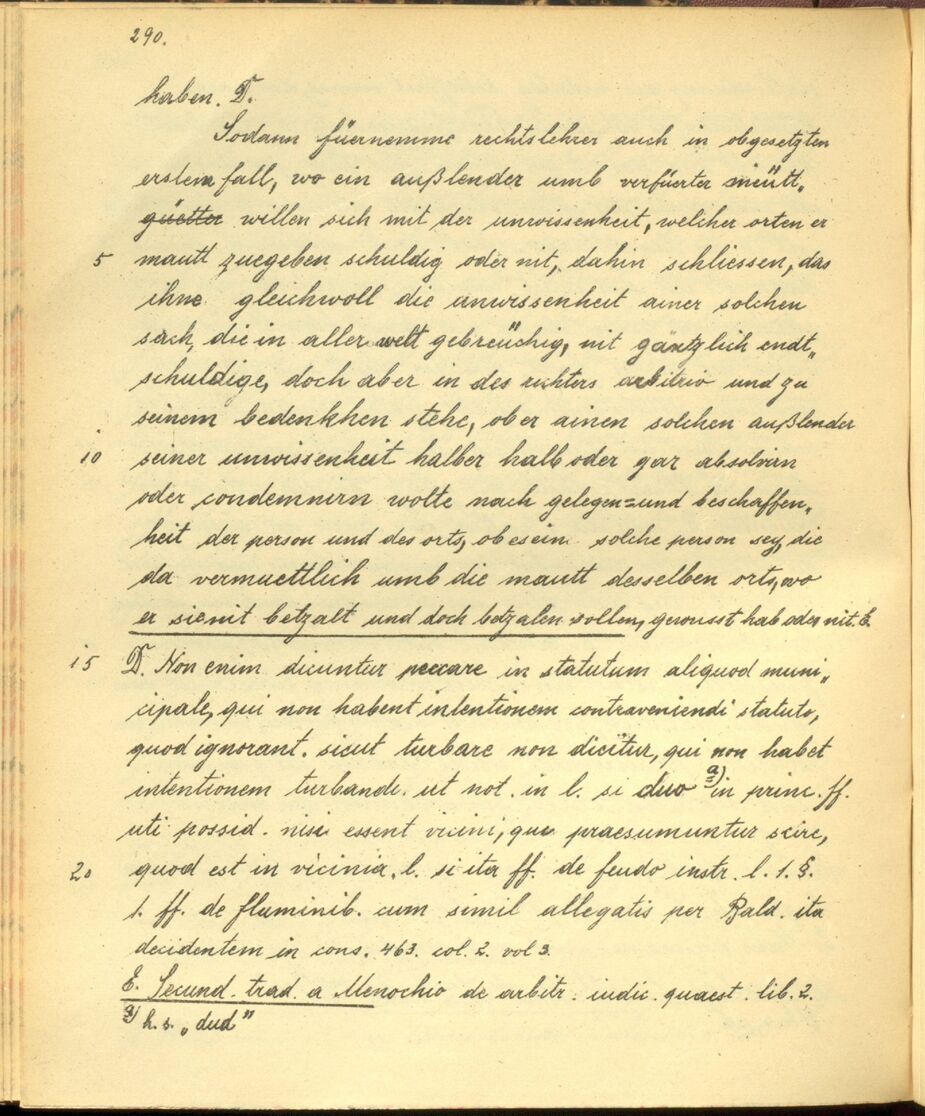 290.
haben. D.
Sodann füernemme rechtslehrer auch in obgesetzten
erstem fall, wo ein außlender umb verfüerter meütt„
güetter willen sich mit der unwissenheit, welcher orten er
5 mautt zuegeben schuldig oder nit, dahin schliessen, das
ihne gleichwoll die unwissenheit ainer solchen
sach, die in aller welt gebreüchig, nit gäntzlich endt„
schuldige, doch aber in des richters arbitrio und zu
seinem bedenkhen stehe, ob er ainen solchen außlender
10 seiner unwissenheit halber halb oder gar absolvirn
oder condemnirn wolte nach gelegen= und beschaffen„
heit der person und des orts, ob es ein solche person sey, die
da vermuettlich umb die mautt desselben orts, wo
er sie nit betzalt und doch betzalen sollen, gewusst hab oder nit. E.
15 D. Non enim dicuntur peccare in statutum aliquod muni„
cipale, qui non habent intentionem contraveniendi statuto,
quod ignorant. sicut turbare non dicitur, qui non habet
intentionem turbandi. ut not. in l. si duo a) in princ. ff.
uti possid. nisi essent vicini, qui praesumuntur scire,
20 quod est in vicinia. l. si ita ff. de feudo instr. l. 1. §.
1. ff. de fluminib. cum simil allegatis per Bald. ita
decidentem in cons. 463. col. 2. vol 3.
E. Secund. trad. a Menochio de arbitr. iudic. quaest. lib. 2.
a) h. s. „dud"